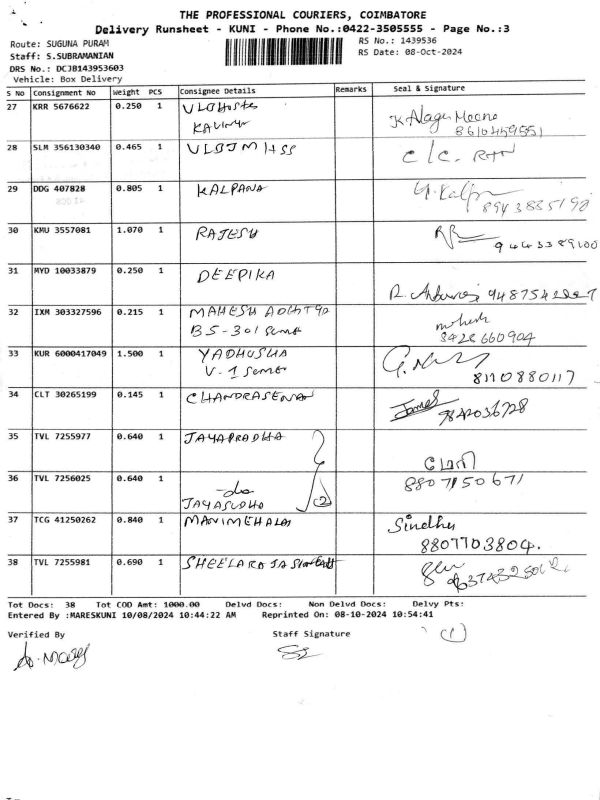 THE PROFESSIONAL COURIERS, COIMBATORE
Delivery Runsheet - KUNI - Phone No.:0422-3505555 - Page No.:3
Route: SUGUNA PURAM RS No.: 1439536
Staff: S.SUBRAMANIAN RS Date: 08-Oct-2024
DRS No.: DCJB143953603
Vehicle: Box Delivery
S No Consignment No Weight PCS Consignee Details Remarks Seal & Signature
27 KRR 5676622 0.250 1
8610459551
28 SLM 356130340 0.465 1 C/C.
29 DDG 407828 0.805 1 KALPANA
30 KMU 3557081 1.070 1 RAJESH
31 MYD 10033879 0.250 1 DEEPIKA
32 IXM 303327596 0.215 1 MAHESH
B5-301
8428660904
33 KUR 6000417049 1.500 1 YADHUSHA
V.
8110880117
34 CLT 30265199 0.145 1 CHANDRASENAN James
35 TVL 7255977 0.640 1 JAYAPRADHA
36 TVL 7256025 0.640 1 -do 8807150671
JAYASUDHA (2)
37 TCG 41250262 0.840 1 Sindhu
8807703804.
38 TVL 7255981 0.690 1
Tot Docs: 38 Tot COD Amt: 1000.00 Delvd Docs: Non Delvd Docs: Delvy Pts:
Entered By :MARESKUNI 10/08/2024 10:44:22 AM Reprinted On: 08-10-2024 10:54:41
Verified By Staff Signature (1)